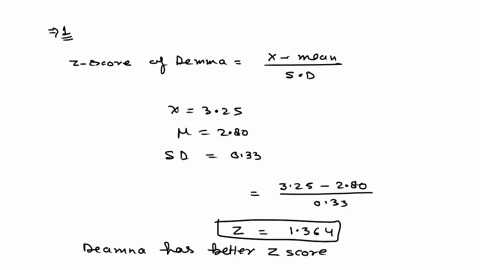 ⇒ 1
Z-score of Demma = x - mean / S.D
x = 3.25
μ = 2.80
SD = 0.33
= 3.25 - 2.80 / 0.33
Z = 1.364
Deamna has better Z score